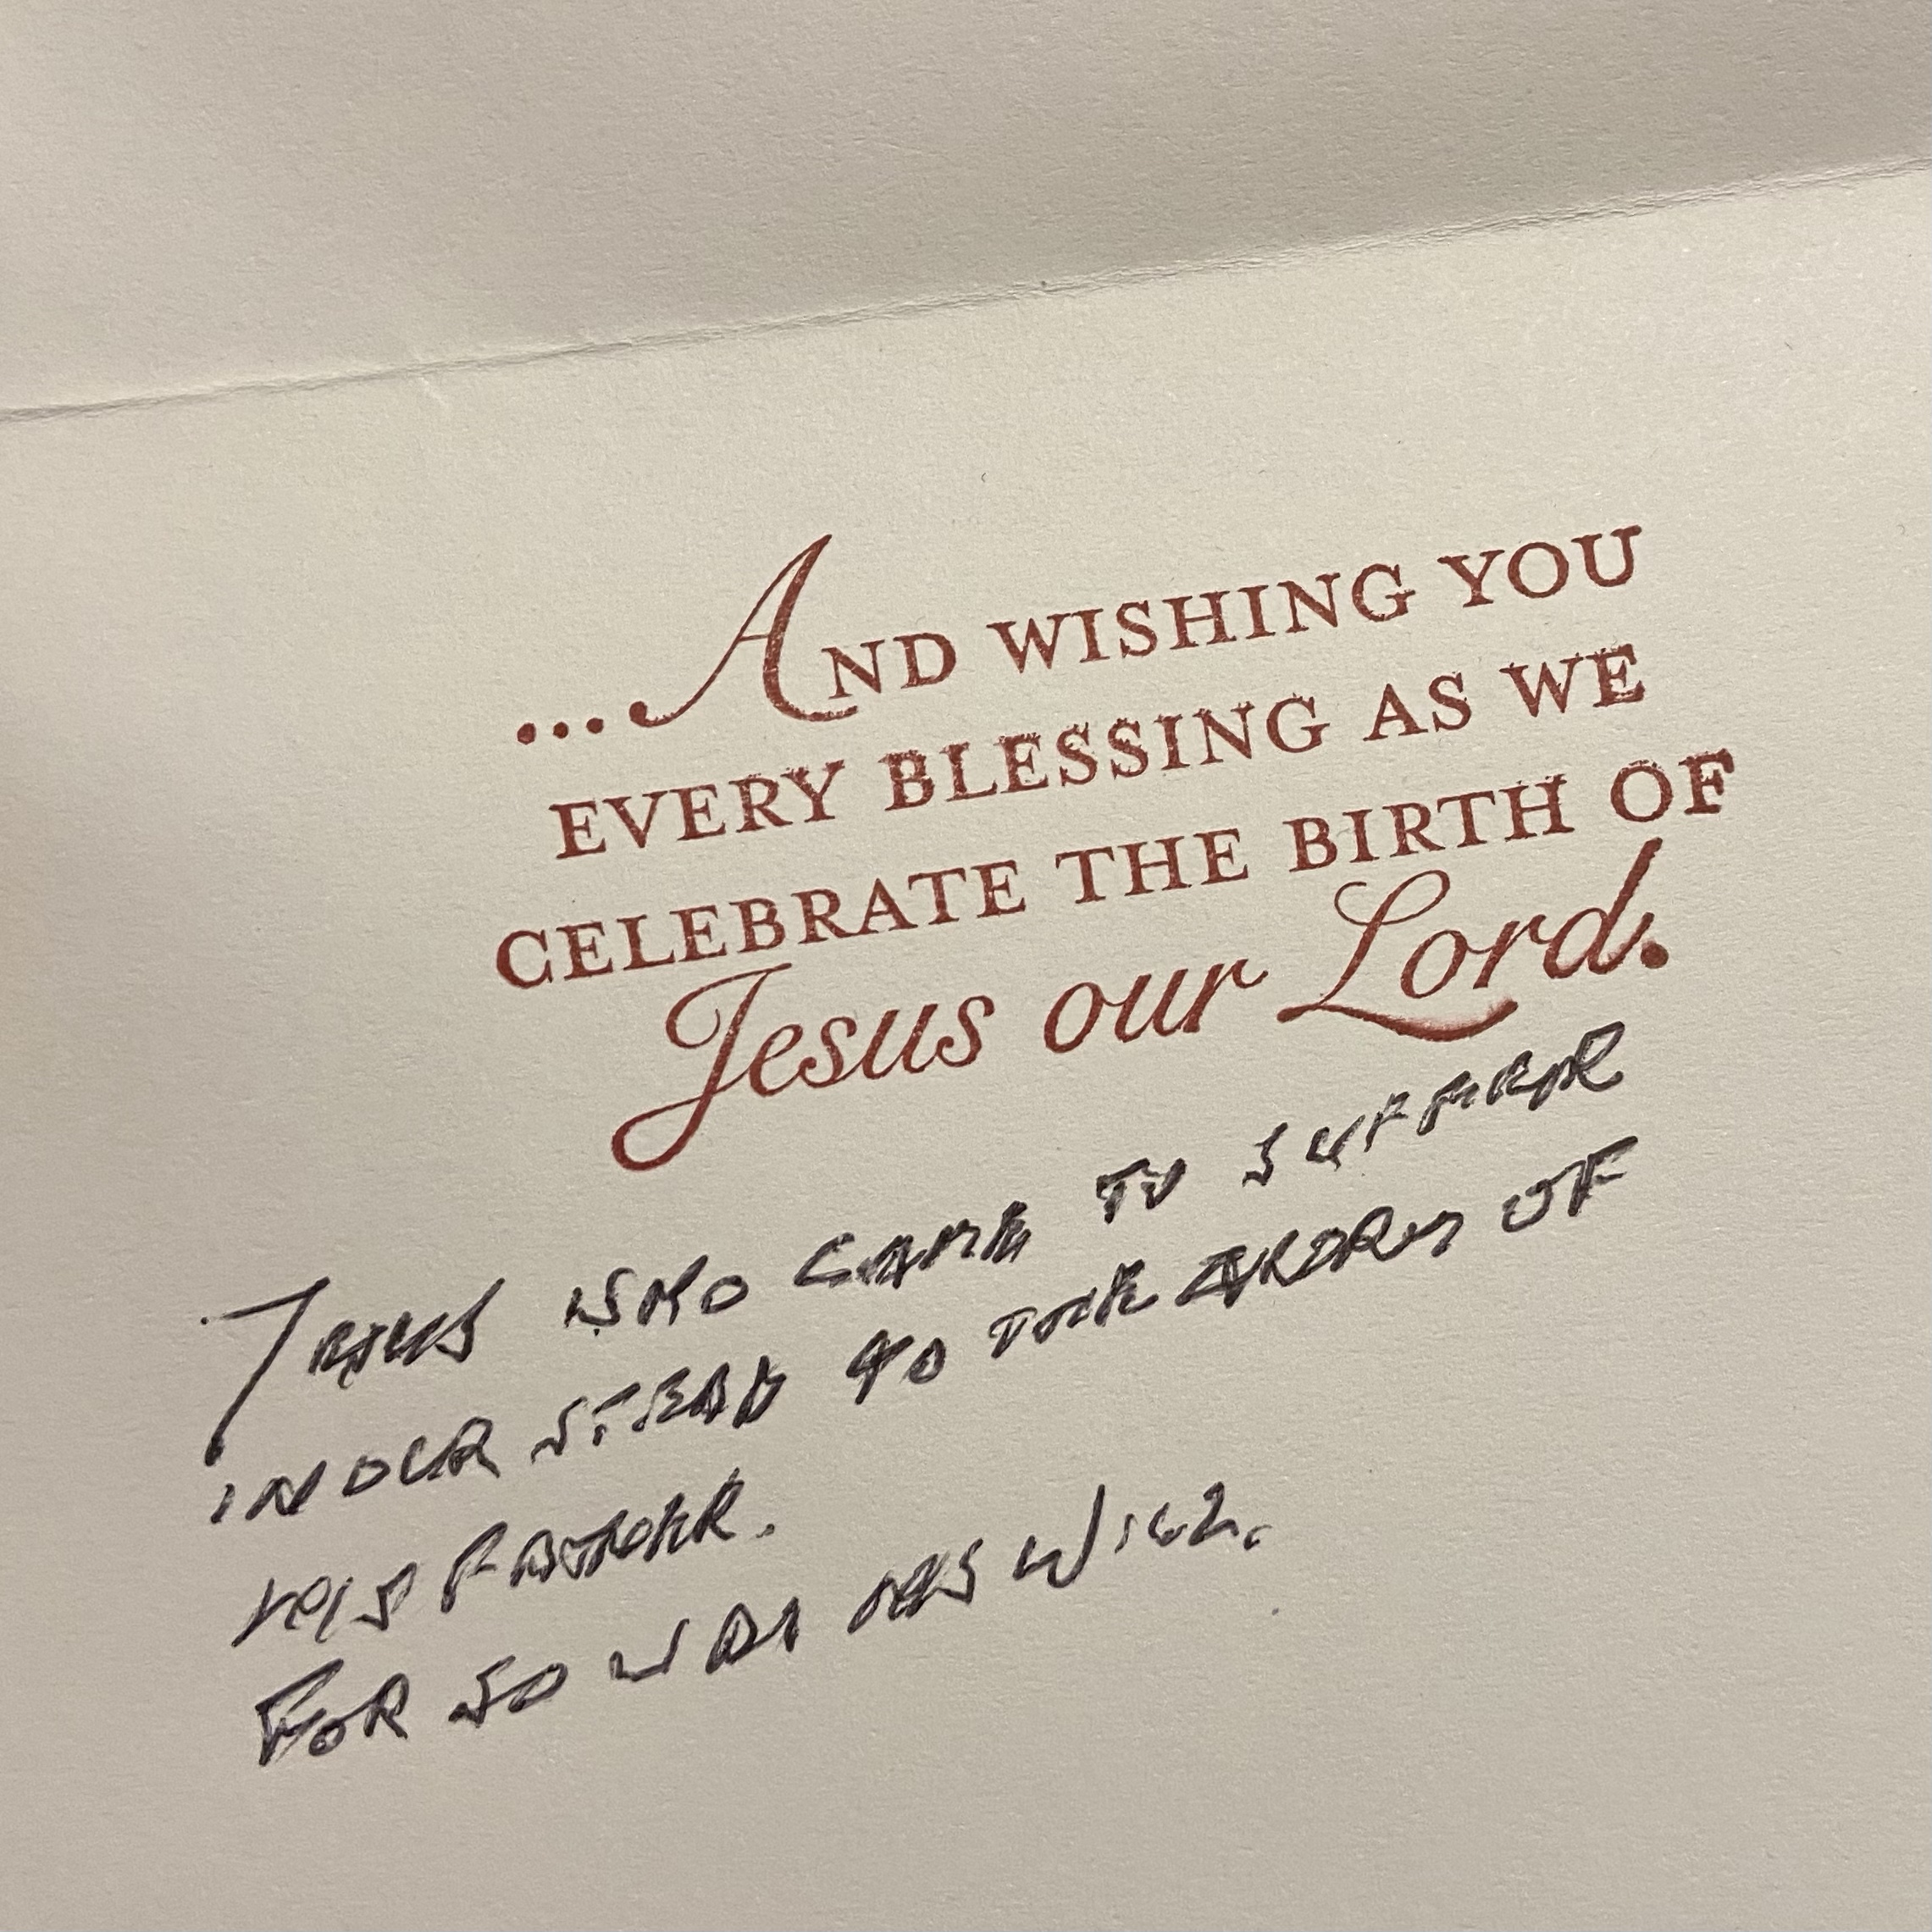 ...AND WISHING YOU
EVERY BLESSING AS WE
CELEBRATE THE BIRTH OF
Jesus our Lord.
JESUS WHO CAME TO SUFFER
IN OUR STEAD TO THE GLORY OF
HIS FATHER.
FOR SO WAS HIS WILL.